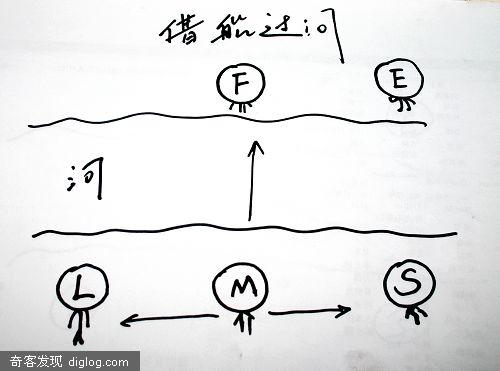 借船过河
F E
河
L M S
奇客发现 diglog.com